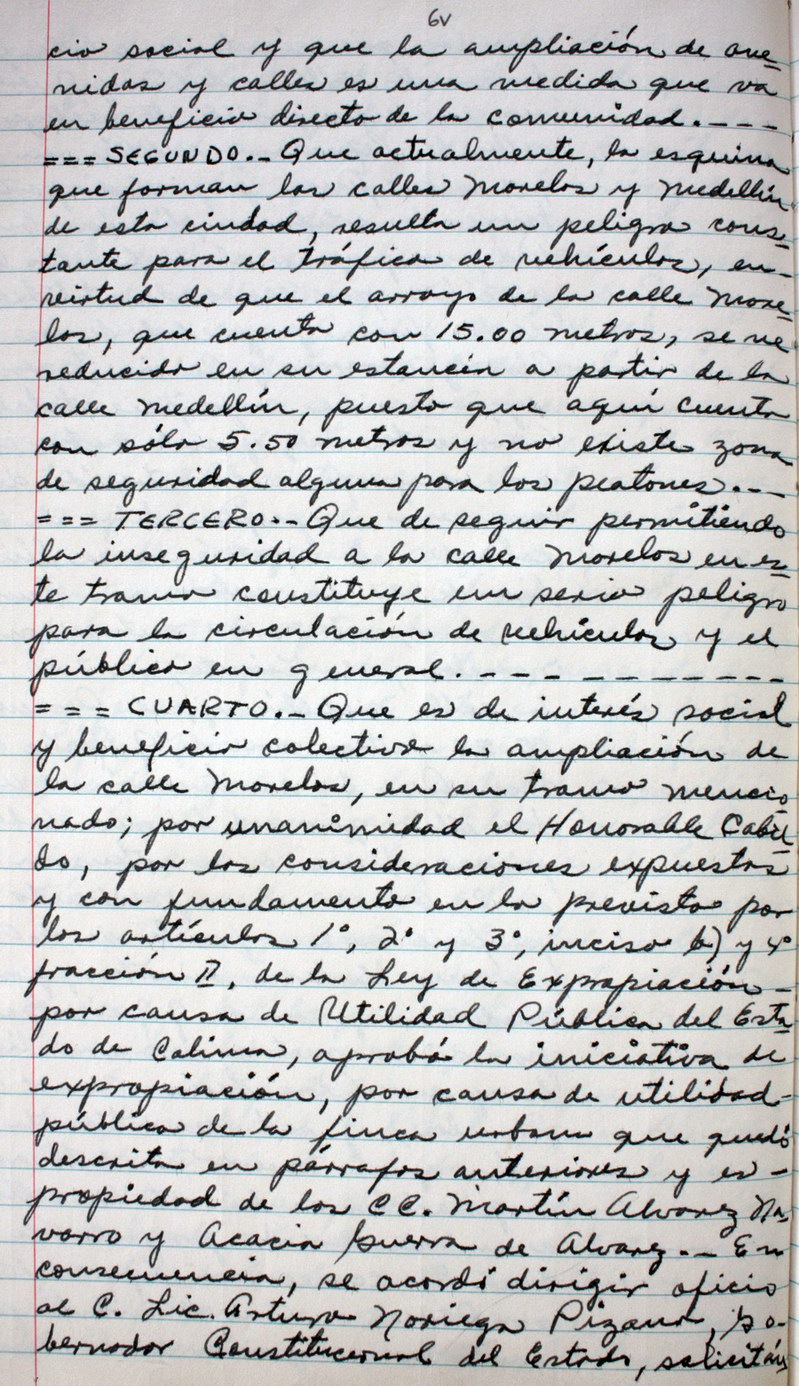 6v
cio social y que la ampliación de ave
nidas y calles es una medida que va
en beneficio directo de la comunidad.----
===SEGUNDO.- Que actualmente, la esquina
que forman las calles Morelos y Medellín
de esta ciudad, resulta un peligro cons-
tante para el tráfico de vehículos, en-
virtud de que el arroyo de la calle More-
los, que cuenta con 15.00 metros, se ve
reducido en su estancia a partir de la
calle Medellín, puesto que aquí cuenta
con sólo 5.50 metros y no existe zona
de seguridad alguna para los peatones.---
=== TERCERO.- Que de seguir permitiendo
la inseguridad a la calle Morelos en es-
te tramo constituye un serio peligro
para la circulación de vehículos y el
público en general.------------
=== CUARTO.- Que es de interés social
y beneficio colectivo la ampliación de
la calle Morelos, en su tramo mencio
nado; por unanimidad el Honorable Cabil-
do, por las consideraciones expuestas
y con fundamento en lo previsto por
los artículos 1°, 2° y 3°, inciso b) y 4°
fracción II, de la Ley de Expropiación-
por causa de Utilidad Pública del Esta-
do de Colima, aprobó la iniciativa de
expropiación, por causa de utilidad-
pública de la finca urbana que quedó
descrita en párrafos anteriores y es-
propiedad de los CC. Martín Alvarez Na-
varro y Acacia Guerra de Alvarez.- En
consecuencia, se acordó dirigir oficio
al C. Lic. Arturo Noriega Pizano, Go-
bernador Constitucional del Estado, solicitán